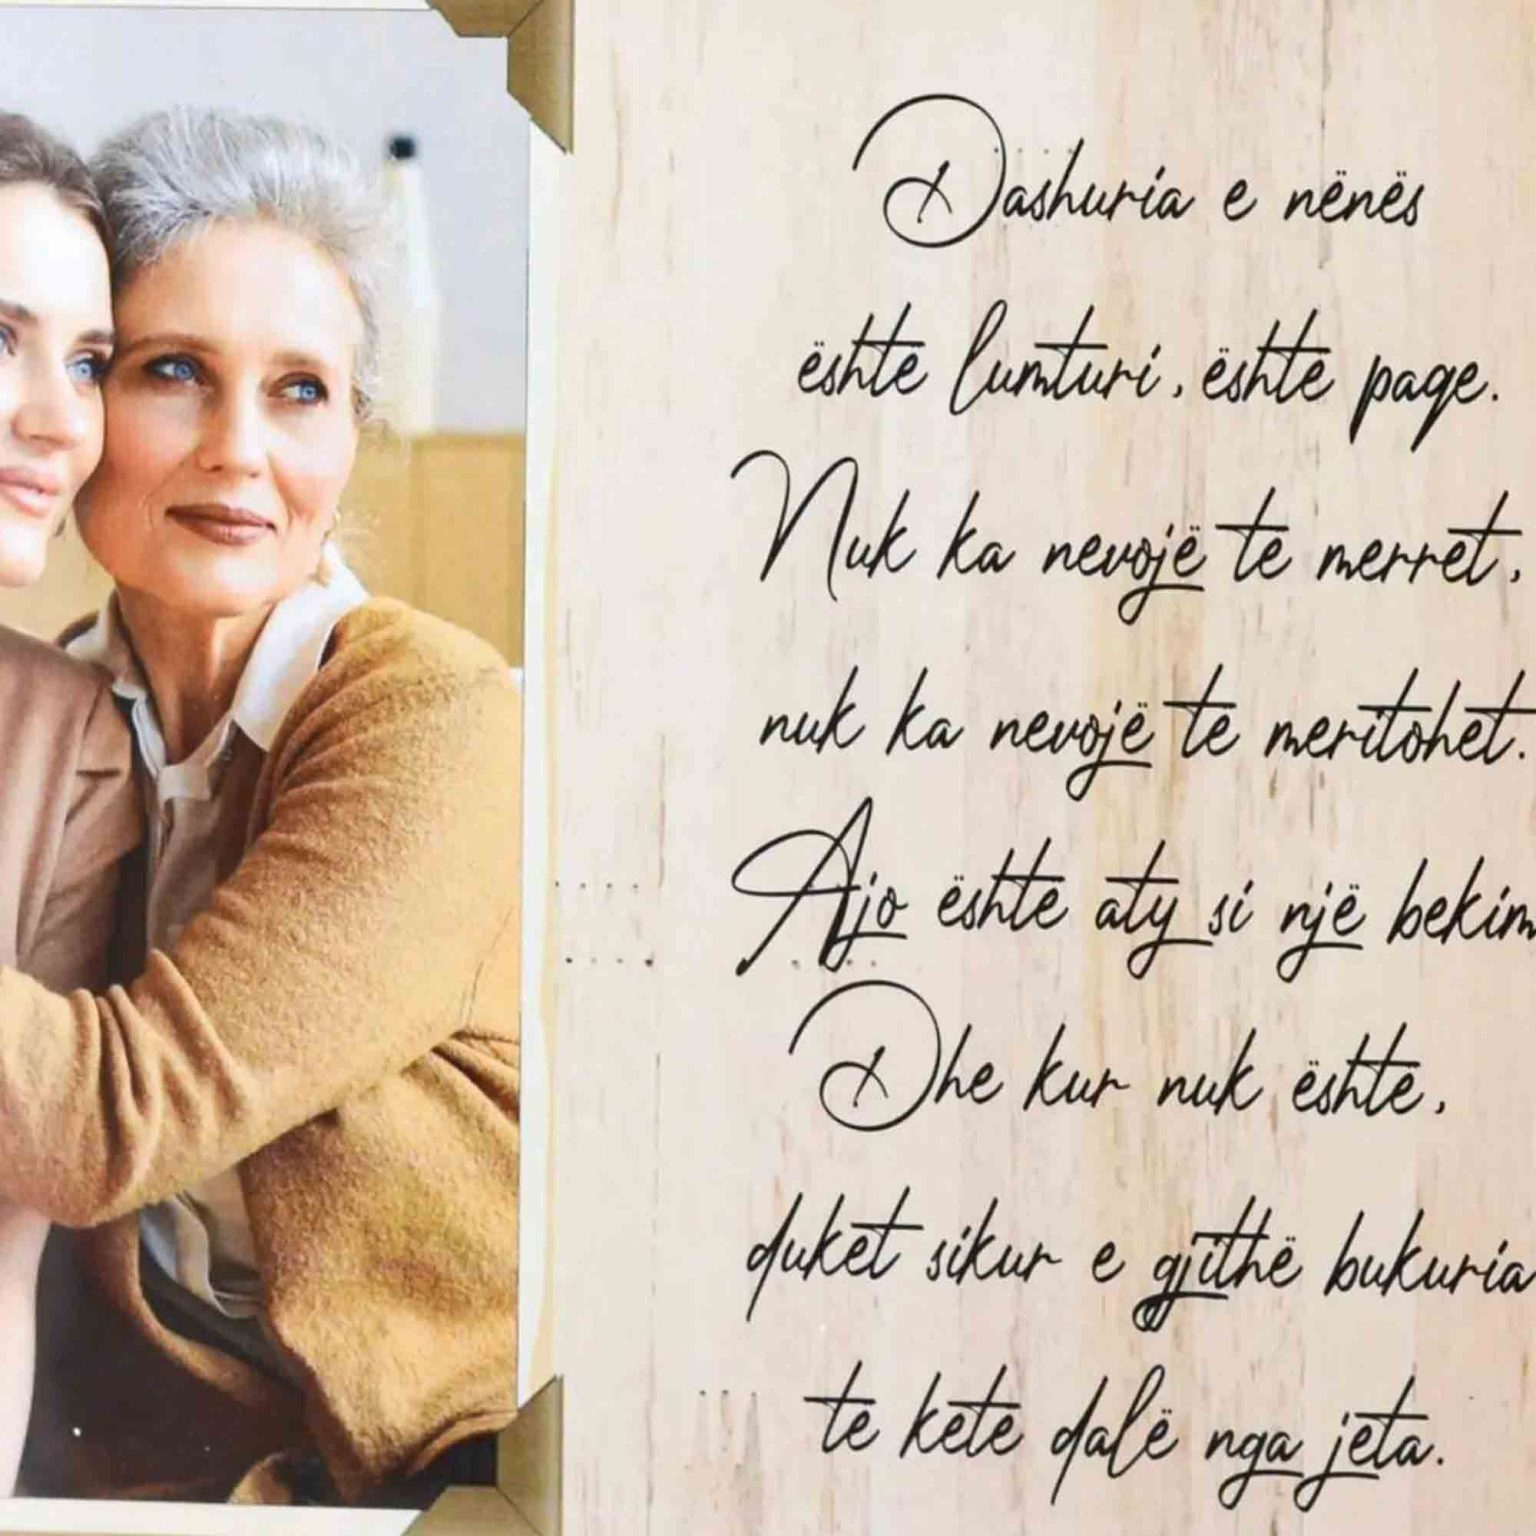 Dashuria e nënës
është lumturi, është paqe.
Nuk ka nevojë të merret,
nuk ka nevojë të meritohet.
Ajo është aty si një bekim
Dhe kur nuk është,
duket sikur e gjithë bukuria
të ketë dalë nga jeta.